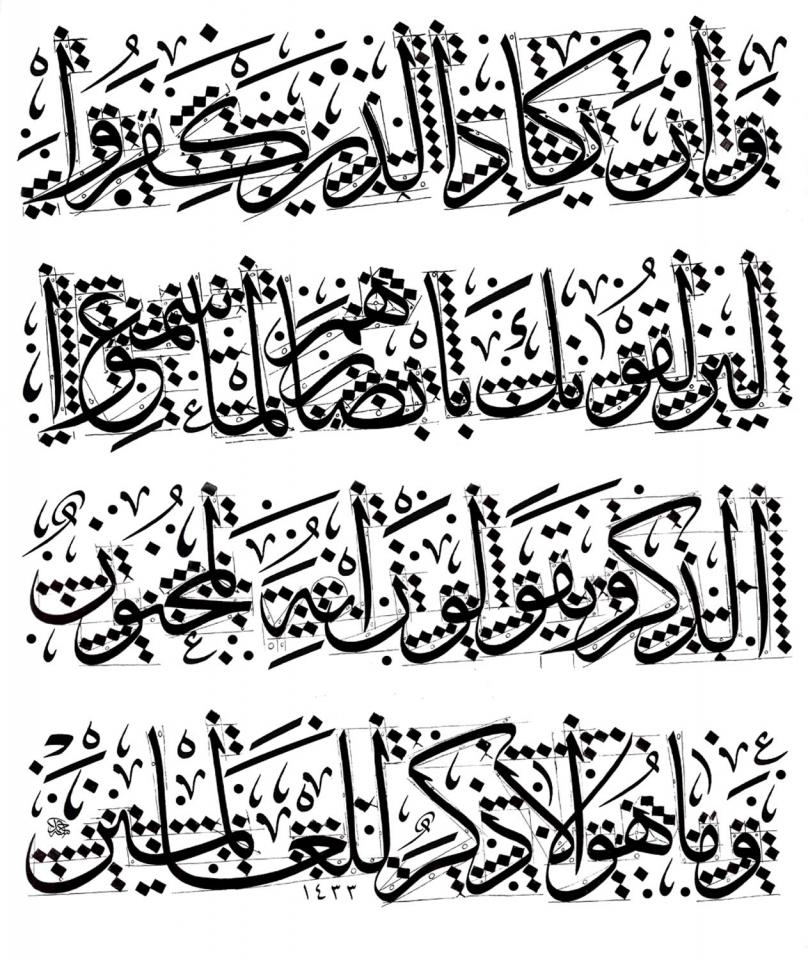 وإن يكاد الذين كفروا
ليزلقونك بأبصارهم لما سمعوا
الذكر ويقولون إنه لمجنون
وما هو إلا ذكر للعالمين
١٤٣٣